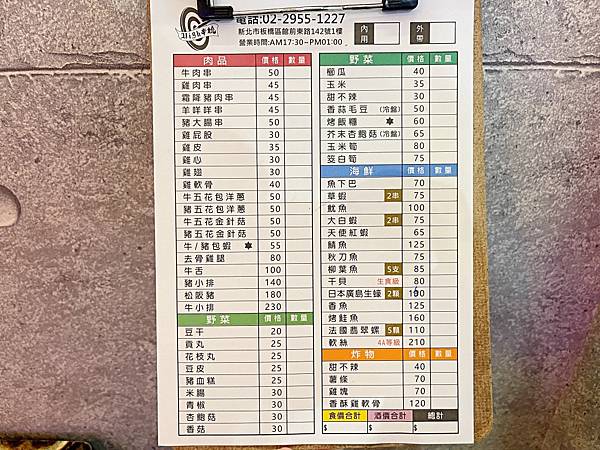 電話:02-2955-1227
新北市板橋區館前東路142號1樓
營業時間:AM17:30~PM01:00
內用
外帶
肉品 價格 數量
牛肉串 50
雞肉串 45
霜降豬肉串 45
羊咩咩串 45
豬大腸串 50
雞屁股 30
雞皮 35
雞心 30
雞翅 30
雞軟骨 40
牛五花包洋蔥 50
豬五花包洋蔥 50
牛五花金針菇 50
豬五花金針菇 50
牛/豬包蝦 55
去骨雞腿 80
牛舌 100
豬小排 140
松阪豬 180
牛小排 230
野菜 價格 數量
豆干 20
貢丸 25
花枝丸 25
豆皮 25
豬血糕 25
米腸 30
青椒 30
杏鮑菇 30
香菇 30
野菜 價格 數量
櫛瓜 40
玉米 35
甜不辣 30
香蒜毛豆 (冷盤) 50
烤飯糰 60
芥末杏鮑菇 (冷盤) 65
玉米筍 80
筊白筍 75
海鮮 價格 數量
魚下巴 70
草蝦 2串 75
魷魚 100
大白蝦 2串 75
天使紅蝦 65
鯖魚 125
秋刀魚 75
柳葉魚 5支 85
干貝 生食級 80
日本廣島生蠔 2顆 100
香魚 125
烤鮭魚 160
法國翡翠螺 5顆 110
軟絲 4A等級 210
炸物 價格 數量
甜不辣 40
薯條 70
雞塊 70
香酥雞軟骨 120
食價合計 酒價合計 總計
$ $ $